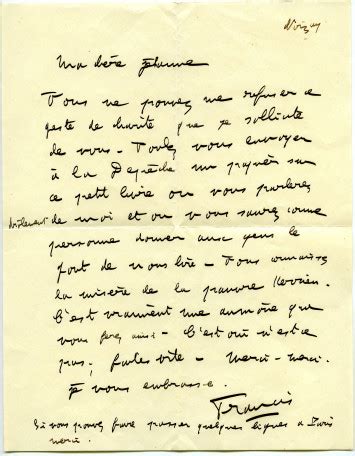 Noizay
Ma chère Jeanne
Vous ne pouvez me refuser ce
geste de charité que je sollicite
de vous - Voulez vous envoyer
à la Depêche un papier sur
ce petit livre où vous parlerez
drôlement de moi et où vous saurez comme
personne donner aux gens le
de nous lire - Vous connaissez
la misère de la pauvre
C'est vraiment une aumône que
vous ferez ainsi - C'est oui n'est ce
pas, faites vite - merci - merci.
Je vous embrasse.
Francis
Si vous pouvez faire passer quelques lignes à Paris
merci.